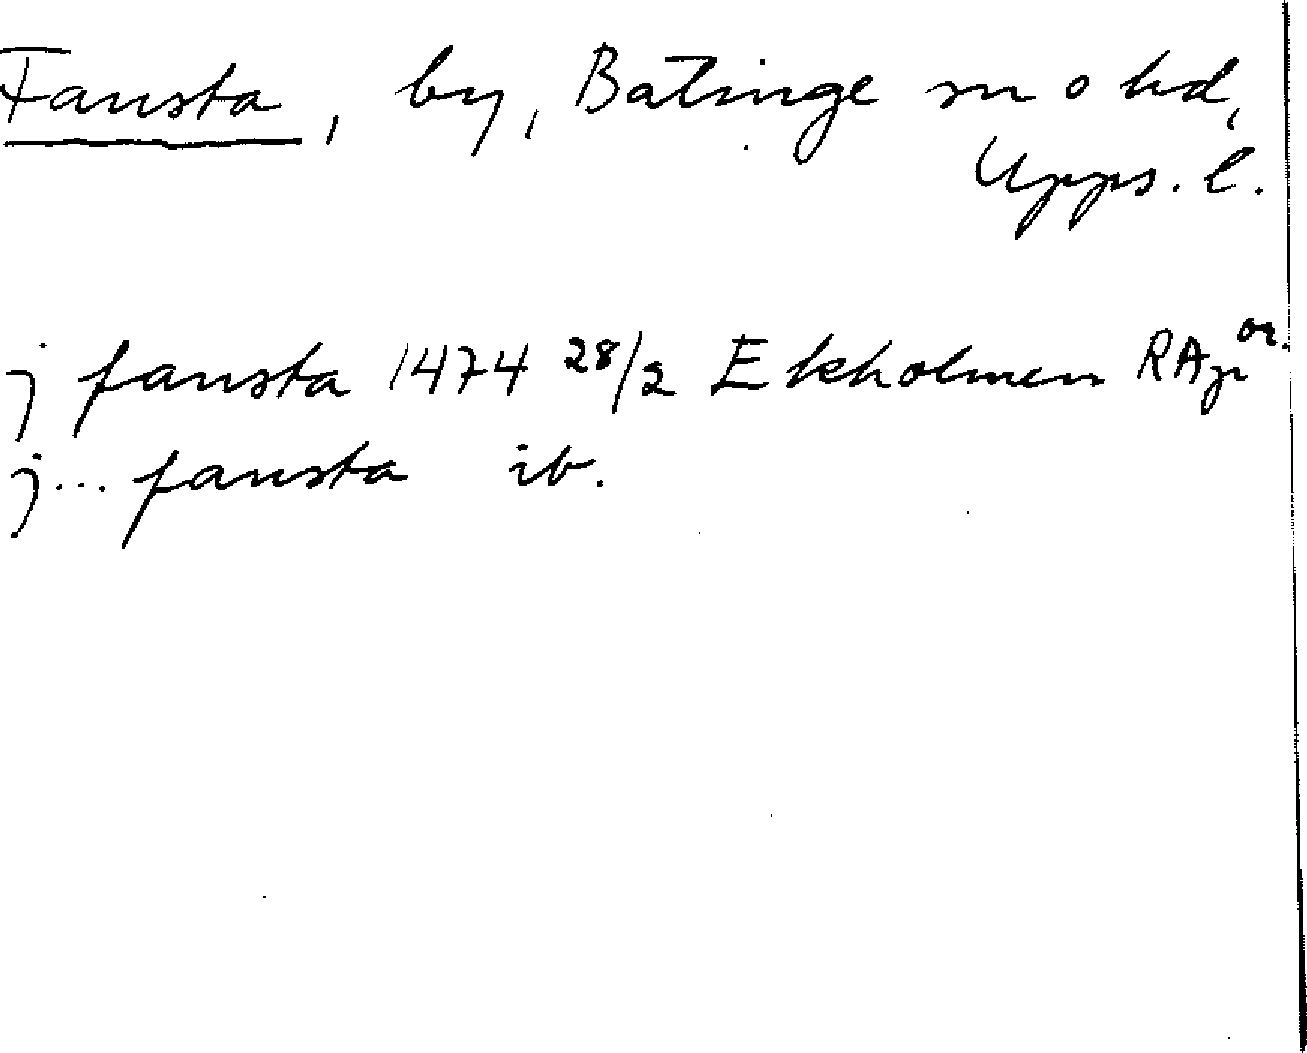 Fansta, by, Bälinge sn o hd,
Upps. l.
j fansta 1474 28/2 Ekholmen RAp or.
j... fansta ib.